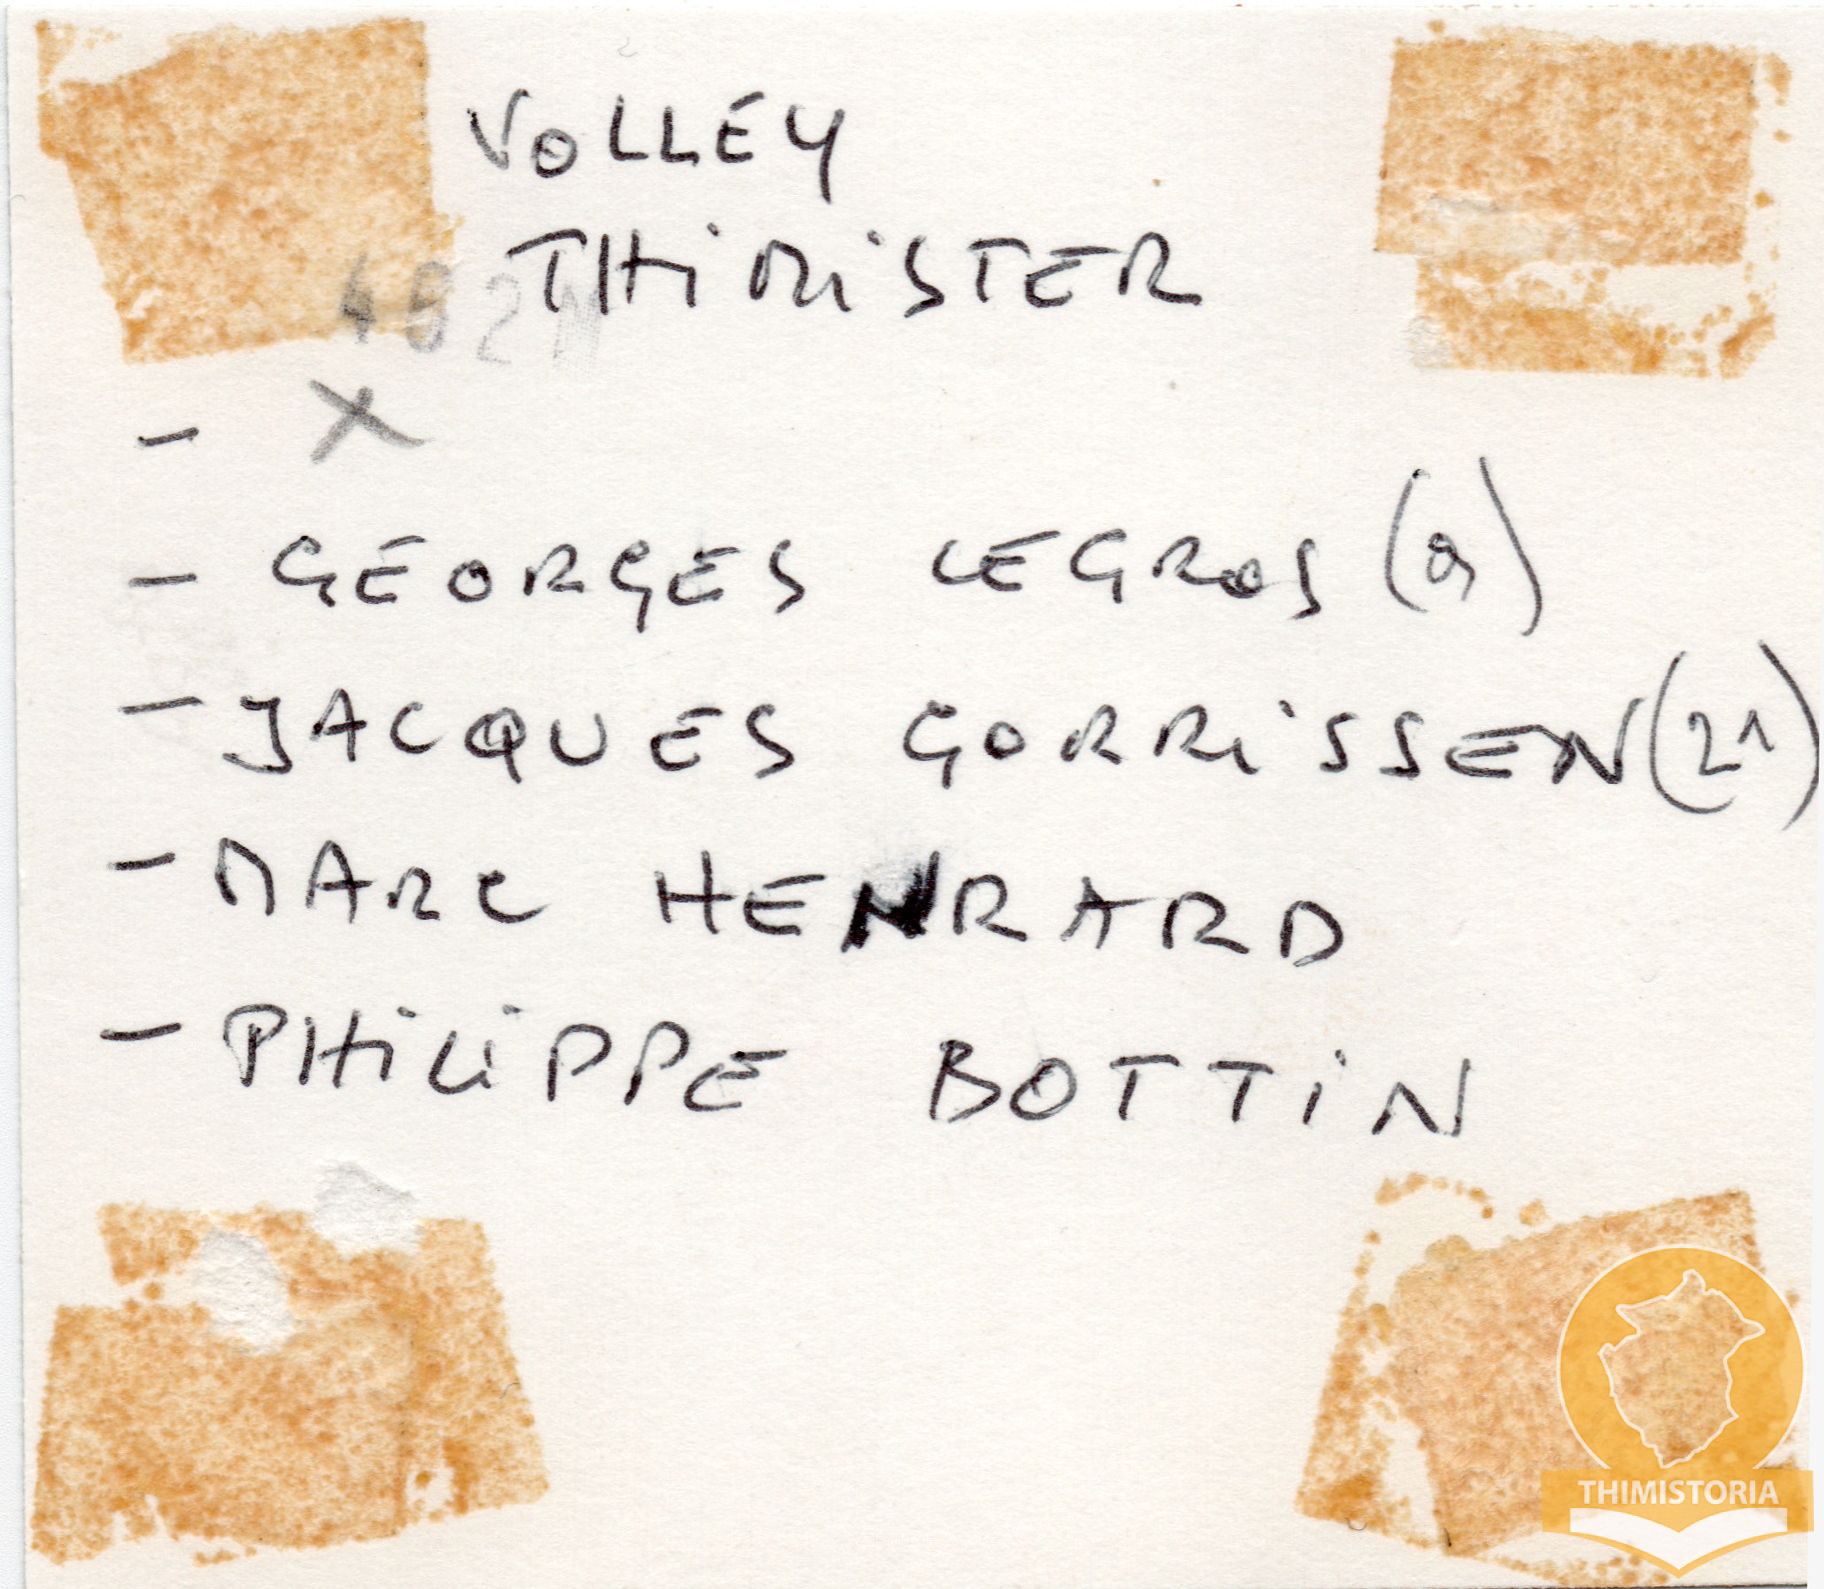 VOLLEY
THiMiSTER
- X
- GEORGES LEGROS (9)
- JACQUES GORRiSSEN (21)
- MARC HENRARD
- PHiLiPPE BOTTiN
THIMISTORIA